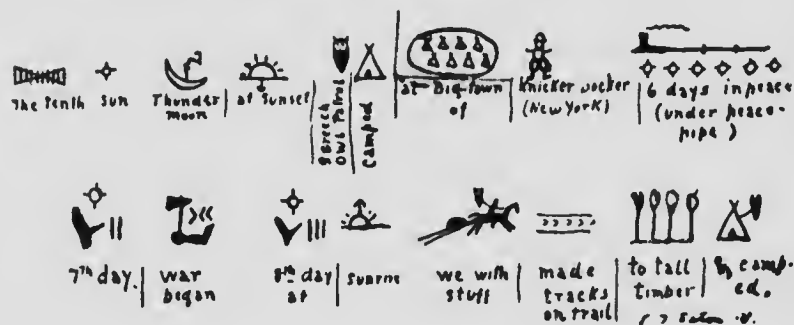 The Tenth Sun Thunder moon at Sunset Screech Owl Patrol Camped at Big town of Knicker bocker (New York) 6 days in peace (under peace-pipe)
7th day. war began 8th day at Sunrise we with stuff made tracks on trail to tall timber & camp-ed.